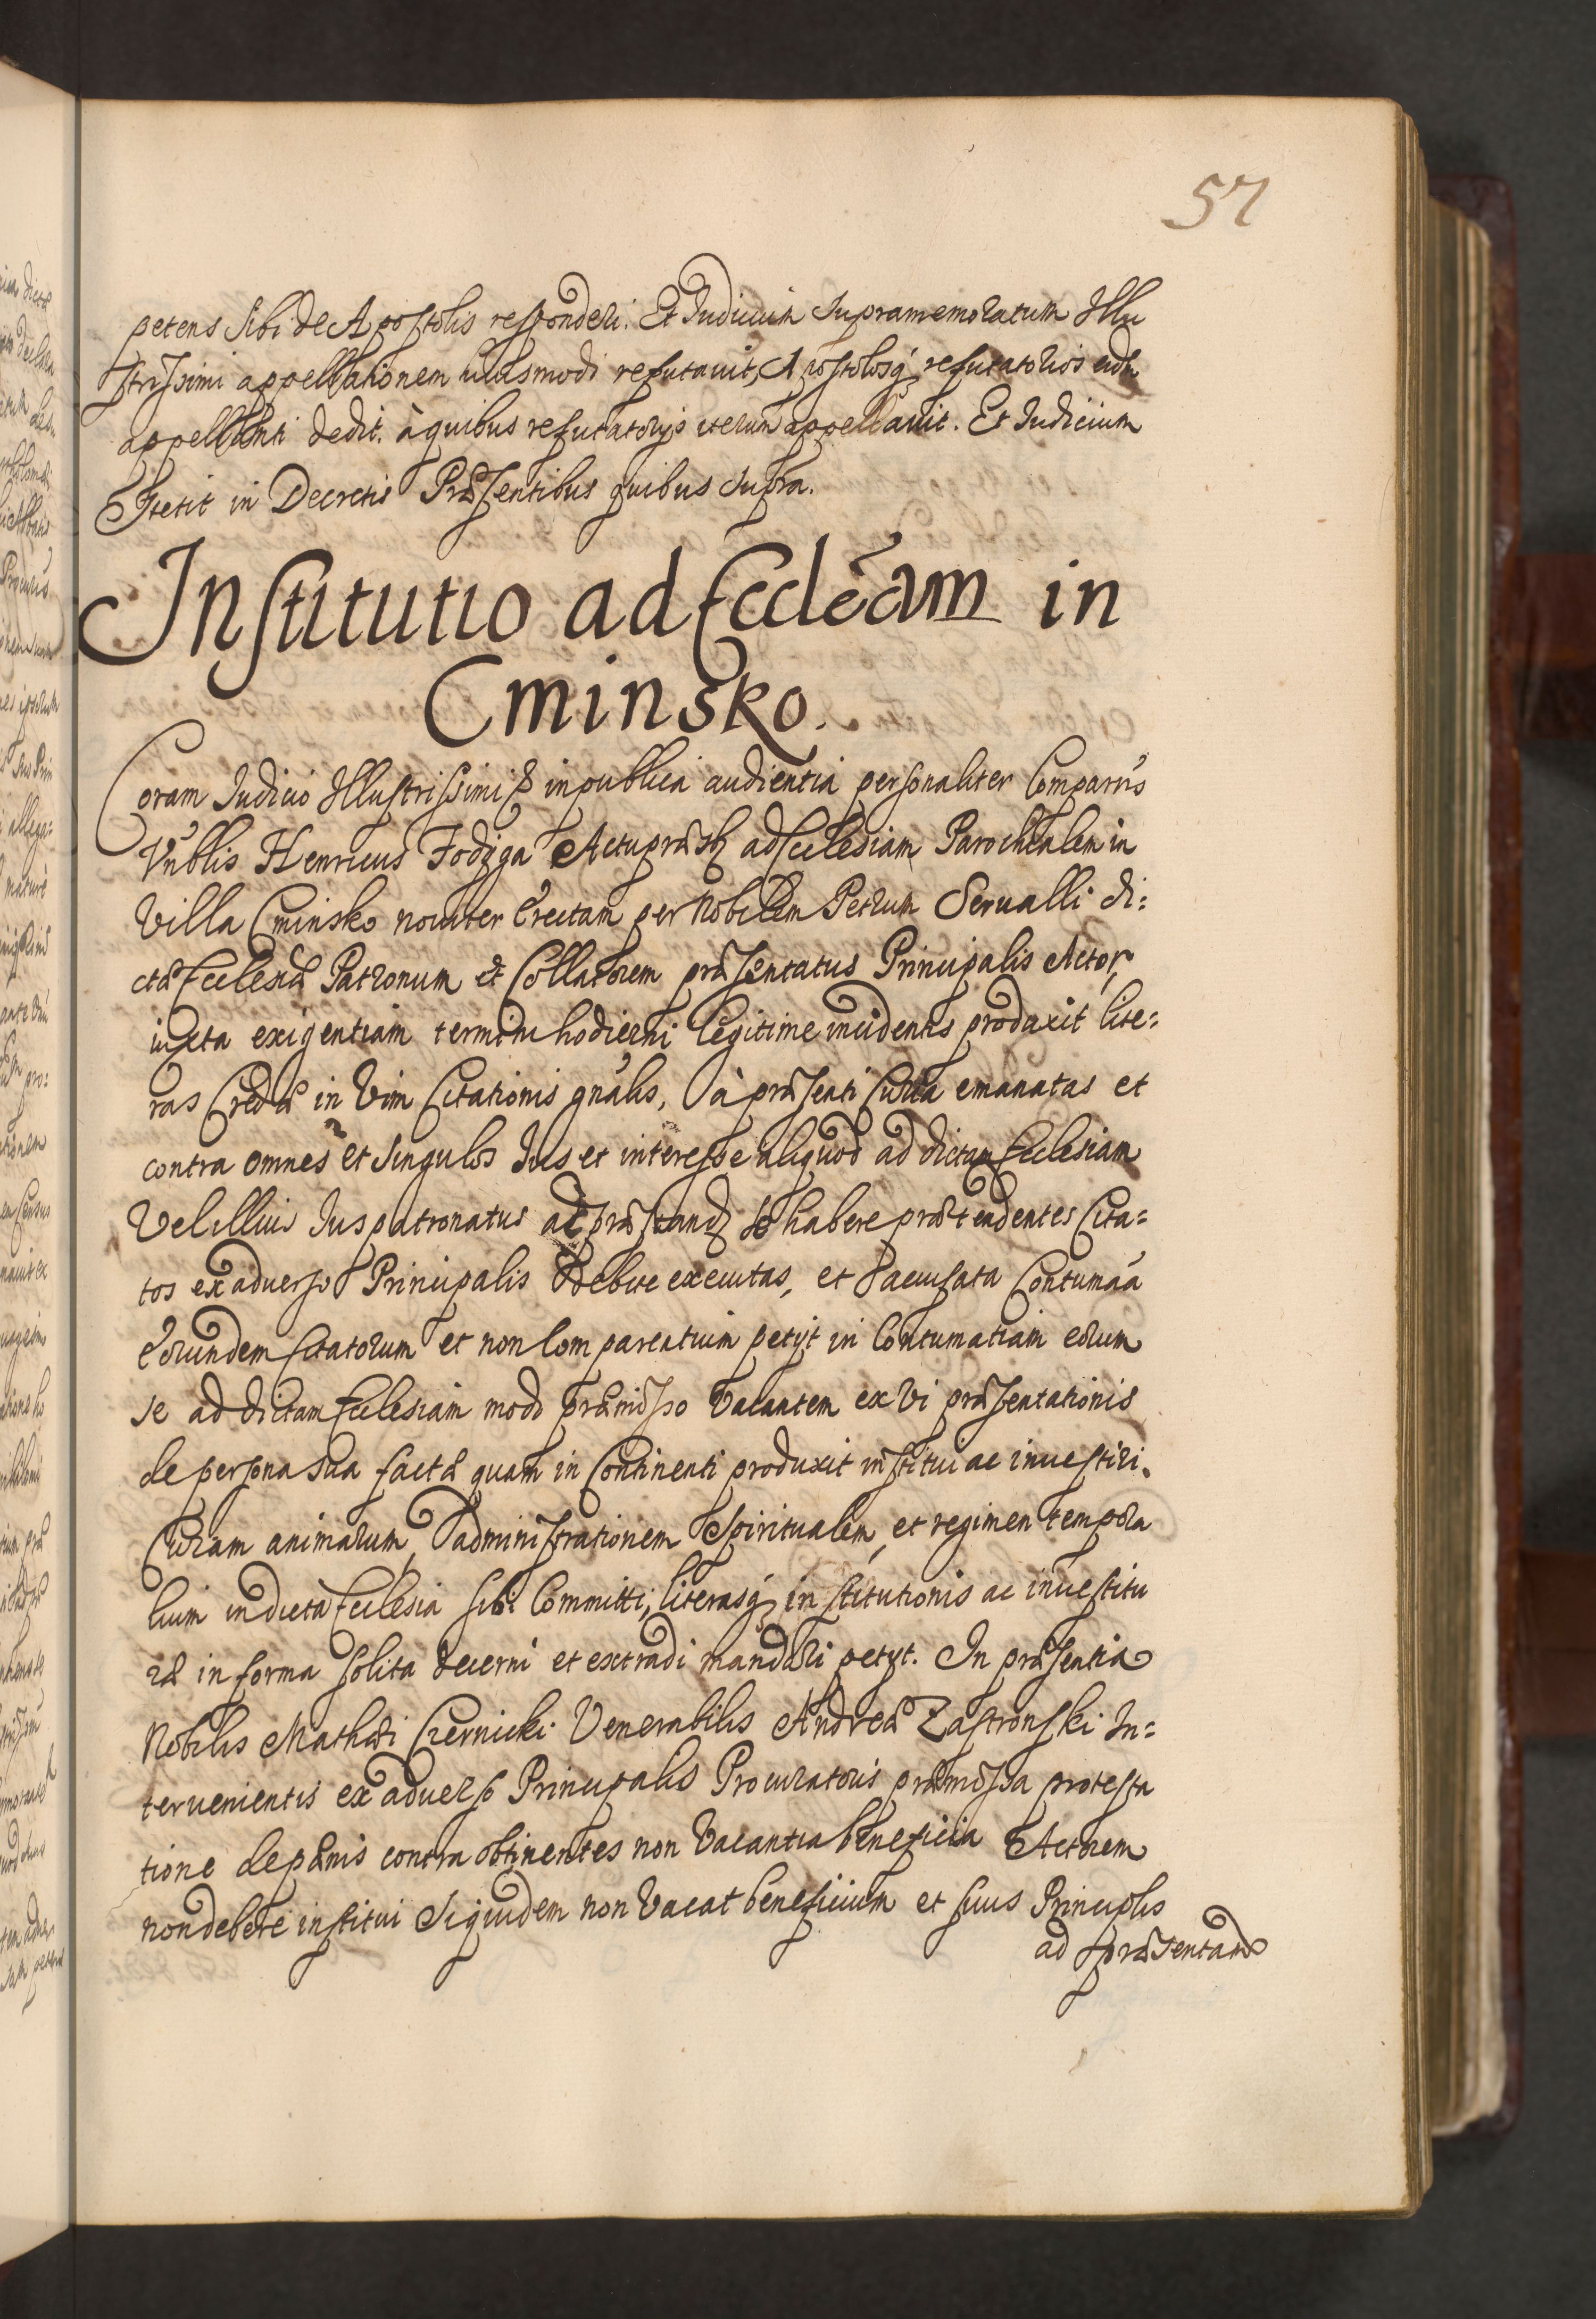 57
petens sibi de Apostolis responderi. Et Iudicium supramemoratum Illu
strissimi appellationem huiusmodi refutauit, Apostolosq́ refutatorios eidē
appellanti dedit. à quibus refutatorijs iterum appellauit. Et Iudicium
Stetit in Decretis Præsentibus quibus supra.
Institutio ad Eccleãm in
Cminsko.
Coram Iudicio Illustrissimi &c in publica audientia personaliter Comparẽs
Vnblis Henricus Fodzga Actu præsb ad Ecclesiam Parochialem in
Villa Cminsko nouiter Erectam per Nobilem Petrum Serualli di=
ctæ Ecclesiæ Patronum et Collatorem præsentatus Principalis Actor,
iuxta exigentiam termini hodierni legitime incidentis produxit lite=
ras Credæ in Vim Citationis gnālis, à præsenti Curia emanatas et
contra omnes et singulos Ius et interesse aliquod ad dictam Ecclesiam
Vel illius Iuspatronatus ac præstandj se habere prætendentes Cita=
tos ex aduerso Principalis debite executas, et accusata Contumaā
Eorundem Citatorum et non Comparentium petijt in Contumatiam eorum
se ad dictam Ecclesiam modo præmisso Vacantem ex Vi præsentationis
de persona sua factæ quam in Continenti produxit institui ac inuestiri.
Curam animarum, administrationem Spiritualem, et regimen tempora
lium in dicta Ecclesia sibi Committi, literasq́ institutionis ac inuestitu
ræ in forma solita decerni et extradi mandari petyt. In præsentia
Nobilis Mathæi Czernicki Venerabilis Andreæ Zastronski In=
teruenientis ex aduerso Principalis Procuratoris præmissa protesta
tione de pænis contra obtinentes non Vacantia beneficia Actorem
non debere institui Siquidem non Vacat beneficium et suus Principlis
ad præsentand